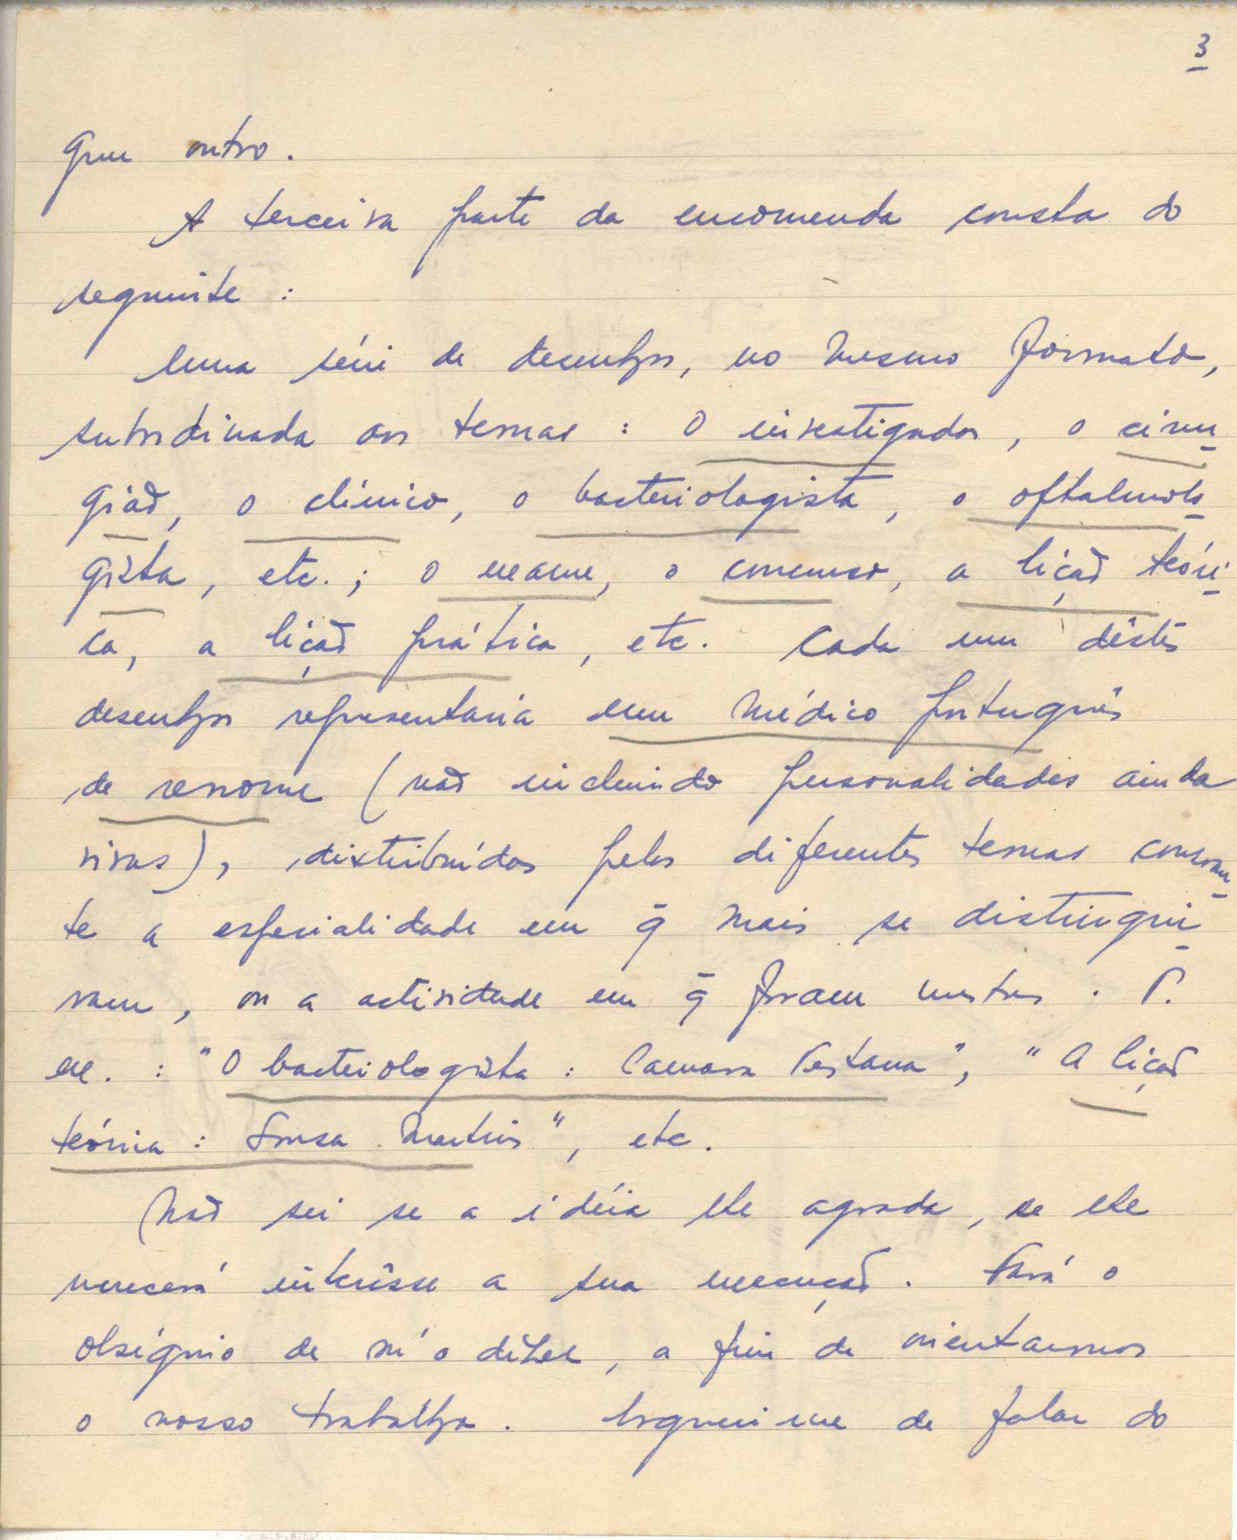 3
quer outro.
A terceira parte da encomenda consta do
seguinte :
Uma série de desenhos, no mesmo formato,
subordinada aos temas : O investigador, o cirur-
gião, o clínico, o bacteriologista, o oftalmolo-
gista, etc. ; o exame, o concurso, a lição teóri-
ca, a lição prática, etc. Cada um dêstes
desenhos representaria um médico português
de renome (não incluindo personalidades ainda
vivas), distribuídos pelos diferentes temas consoan-
te a especialidade em q̃ mais se distingui-
ram, ou a actividade em q̃ foram mestres. P.
ex. : "O bacteriologista : Camara Pestana", "A lição
teórica : Sousa Martins", etc.
Não sei se a idéia lhe agrada, se lhe
merecerá interêsse a sua execução. Fará o
obséquio de m'o dizer, a fim de orientarmos
o nosso trabalho. Esqueci-me de falar do